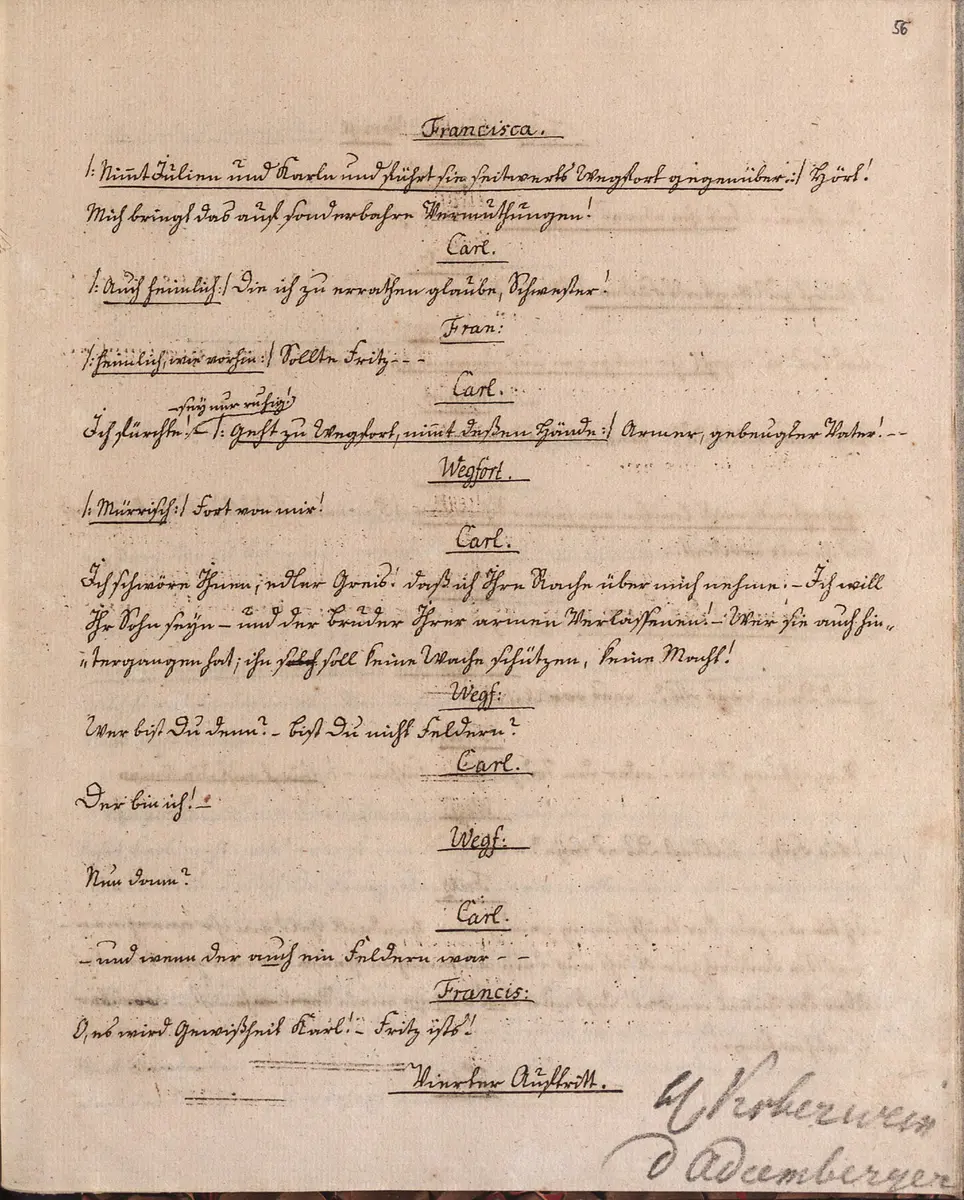 56
Francisca.
/: Nimmt Julien und Karln und führt sie seitwerts Wegfort gegenüber :/ Hört!
Mich bringt das auf sonderbahre Vermuthungen!
Carl.
/: Auch heimlich :/ Die ich zu errathen glaube, Schwester!
Fran:
/: heimlich, wie vorhin :/ Sollte Fritz - - -
Carl.
– sey nur ruhig!
Ich fürchte! – /: Geht zu Wegfort, nimt deßen Hände :/ Armer, gebeugter Vater! - -
Wegfort.
/: Mürrisch :/ Fort von mir!
Carl.
Ich schwöre Ihnen, edler Greis! daß ich Ihre Rache über mich nehme. – Ich will
Ihr Sohn seyn – und der bruder Ihrer armen Verlassenen! – Wer sie auch hin„
„tergangen hat; ihn soll keine Wache schützen, keine Macht!
Wegf:
Wer bist Du denn? – bist Du nicht Feldern?
Carl.
Der bin ich! –
Wegf:
Nun dann?
Carl.
– und wenn der auch ein Feldern war - -
Francis:
O, es wird Gewißheit Karl! – Fritz ists!
Vierter Auftritt.
Koberwein
d Adamberger